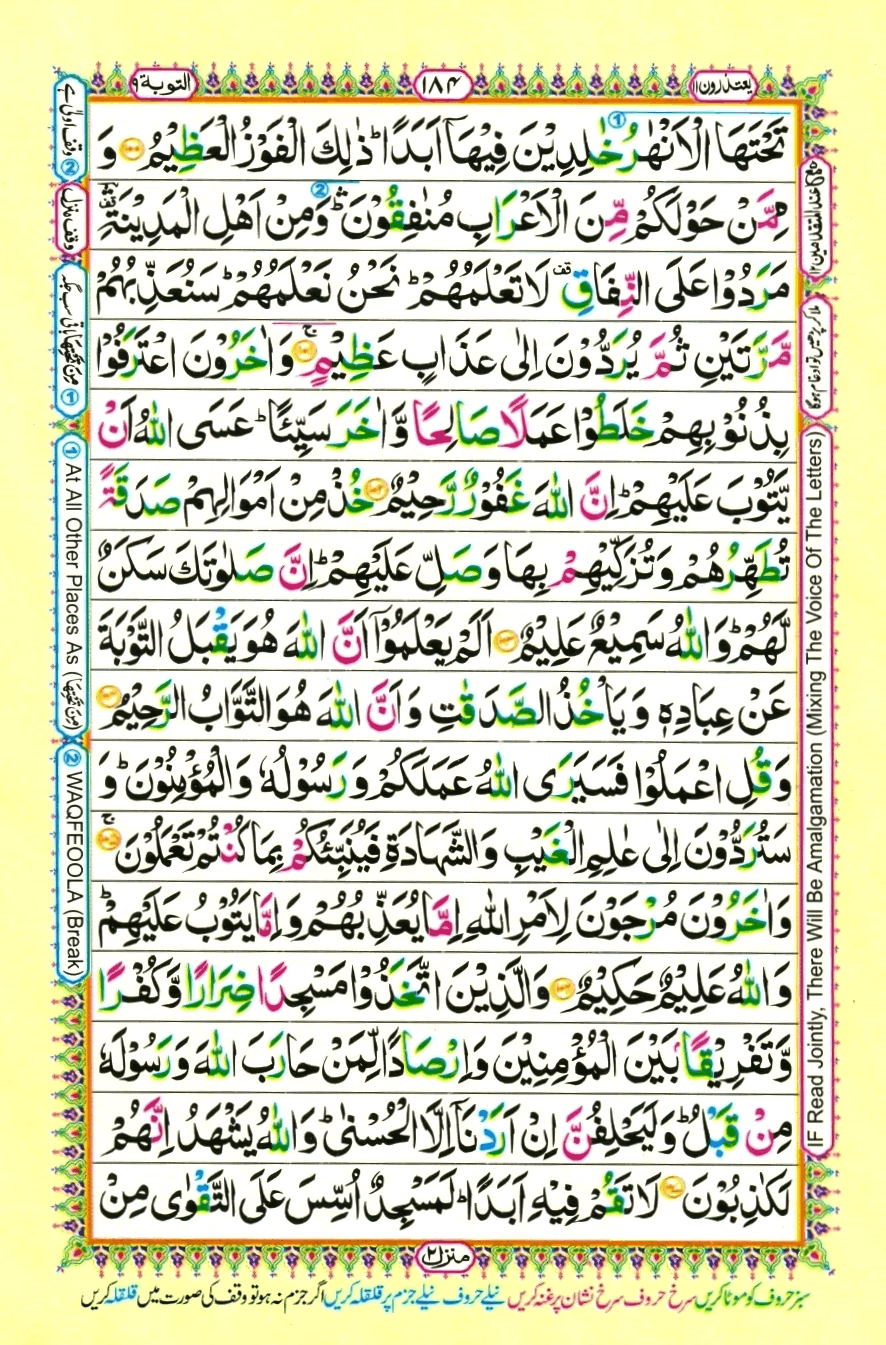 التوبة ٩
١٨٤
يعتذرون ١١
تَحْتَهَا الْاَنْهٰرُ خٰلِدِيْنَ فِيْهَاۤ اَبَدًا ؕ ذٰلِكَ الْفَوْزُ الْعَظِيْمُ ﴿۱۰۰﴾ وَ
مِمَّنْ حَوْلَكُمْ مِّنَ الْاَعْرَابِ مُنٰفِقُوْنَ ۛؕ وَمِنْ اَهْلِ الْمَدِيْنَةِ ۛؔ
مَرَدُوْا عَلَى النِّفَاقِ ۫ لَا تَعْلَمُهُمْ ؕ نَحْنُ نَعْلَمُهُمْ ؕ سَنُعَذِّبُهُمْ
مَّرَّتَيْنِ ثُمَّ يُرَدُّوْنَ اِلٰى عَذَابٍ عَظِيْمٍ ﴿۱۰۱﴾ۚ وَاٰخَرُوْنَ اعْتَرَفُوْا
بِذُنُوْبِهِمْ خَلَطُوْا عَمَلًا صَالِحًا وَّاٰخَرَ سَيِّئًا ؕ عَسَى اللّٰهُ اَنْ
يَّتُوْبَ عَلَيْهِمْ ؕ اِنَّ اللّٰهَ غَفُوْرٌ رَّحِيْمٌ ﴿۱۰۲﴾ خُذْ مِنْ اَمْوَالِهِمْ صَدَقَةً
تُطَهِّرُهُمْ وَتُزَكِّيْهِمْ بِهَا وَصَلِّ عَلَيْهِمْ ؕ اِنَّ صَلٰوتَكَ سَكَنٌ
لَّهُمْ ؕ وَاللّٰهُ سَمِيْعٌ عَلِيْمٌ ﴿۱۰۳﴾ اَلَمْ يَعْلَمُوْۤا اَنَّ اللّٰهَ هُوَ يَقْبَلُ التَّوْبَةَ
عَنْ عِبَادِهٖ وَيَاْخُذُ الصَّدَقٰتِ وَاَنَّ اللّٰهَ هُوَ التَّوَّابُ الرَّحِيْمُ ﴿۱۰۴﴾
وَقُلِ اعْمَلُوْا فَسَيَرَى اللّٰهُ عَمَلَكُمْ وَرَسُوْلُهٗ وَالْمُؤْمِنُوْنَ ؕ وَ
سَتُرَدُّوْنَ اِلٰى عٰلِمِ الْغَيْبِ وَالشَّهَادَةِ فَيُنَبِّئُكُمْ بِمَا كُنْتُمْ تَعْمَلُوْنَ ﴿۱۰۵﴾ۚ
وَاٰخَرُوْنَ مُرْجَوْنَ لِاَمْرِ اللّٰهِ اِمَّا يُعَذِّبُهُمْ وَاِمَّا يَتُوْبُ عَلَيْهِمْ ؕ
وَاللّٰهُ عَلِيْمٌ حَكِيْمٌ ﴿۱۰۶﴾ وَالَّذِيْنَ اتَّخَذُوْا مَسْجِدًا ضِرَارًا وَّكُفْرًا
وَّتَفْرِيْقًۢا بَيْنَ الْمُؤْمِنِيْنَ وَاِرْصَادًا لِّمَنْ حَارَبَ اللّٰهَ وَرَسُوْلَهٗ
مِنْ قَبْلُ ؕ وَلَيَحْلِفُنَّ اِنْ اَرَدْنَاۤ اِلَّا الْحُسْنٰى ؕ وَاللّٰهُ يَشْهَدُ اِنَّهُمْ
لَكٰذِبُوْنَ ﴿۱۰۷﴾ لَا تَقُمْ فِيْهِ اَبَدًا ؕ لَمَسْجِدٌ اُسِّسَ عَلَى التَّقْوٰى مِنْ
منزل ٢
سبز حروف کو موٹا کریں سرخ حروف سرخ نشان پر غنہ کریں نیلے حروف نیلے جزم پر قلقلہ کریں اگر جزم نہ ہو تو وقف کی صورت میں قلقلہ کریں
② وقف اولٰی ہے
وقف منزل
① مِنْ تَحْتِهَا باقی سب جگہ
① At All Other Places As (مِنْ تَحْتِهَا)
② WAQFEOOLA (Break)
ملا کر پڑھیں تو ادغام ہوگا
IF Read Jointly, There Will Be Amalgamation (Mixing The Voice Of The Letters)